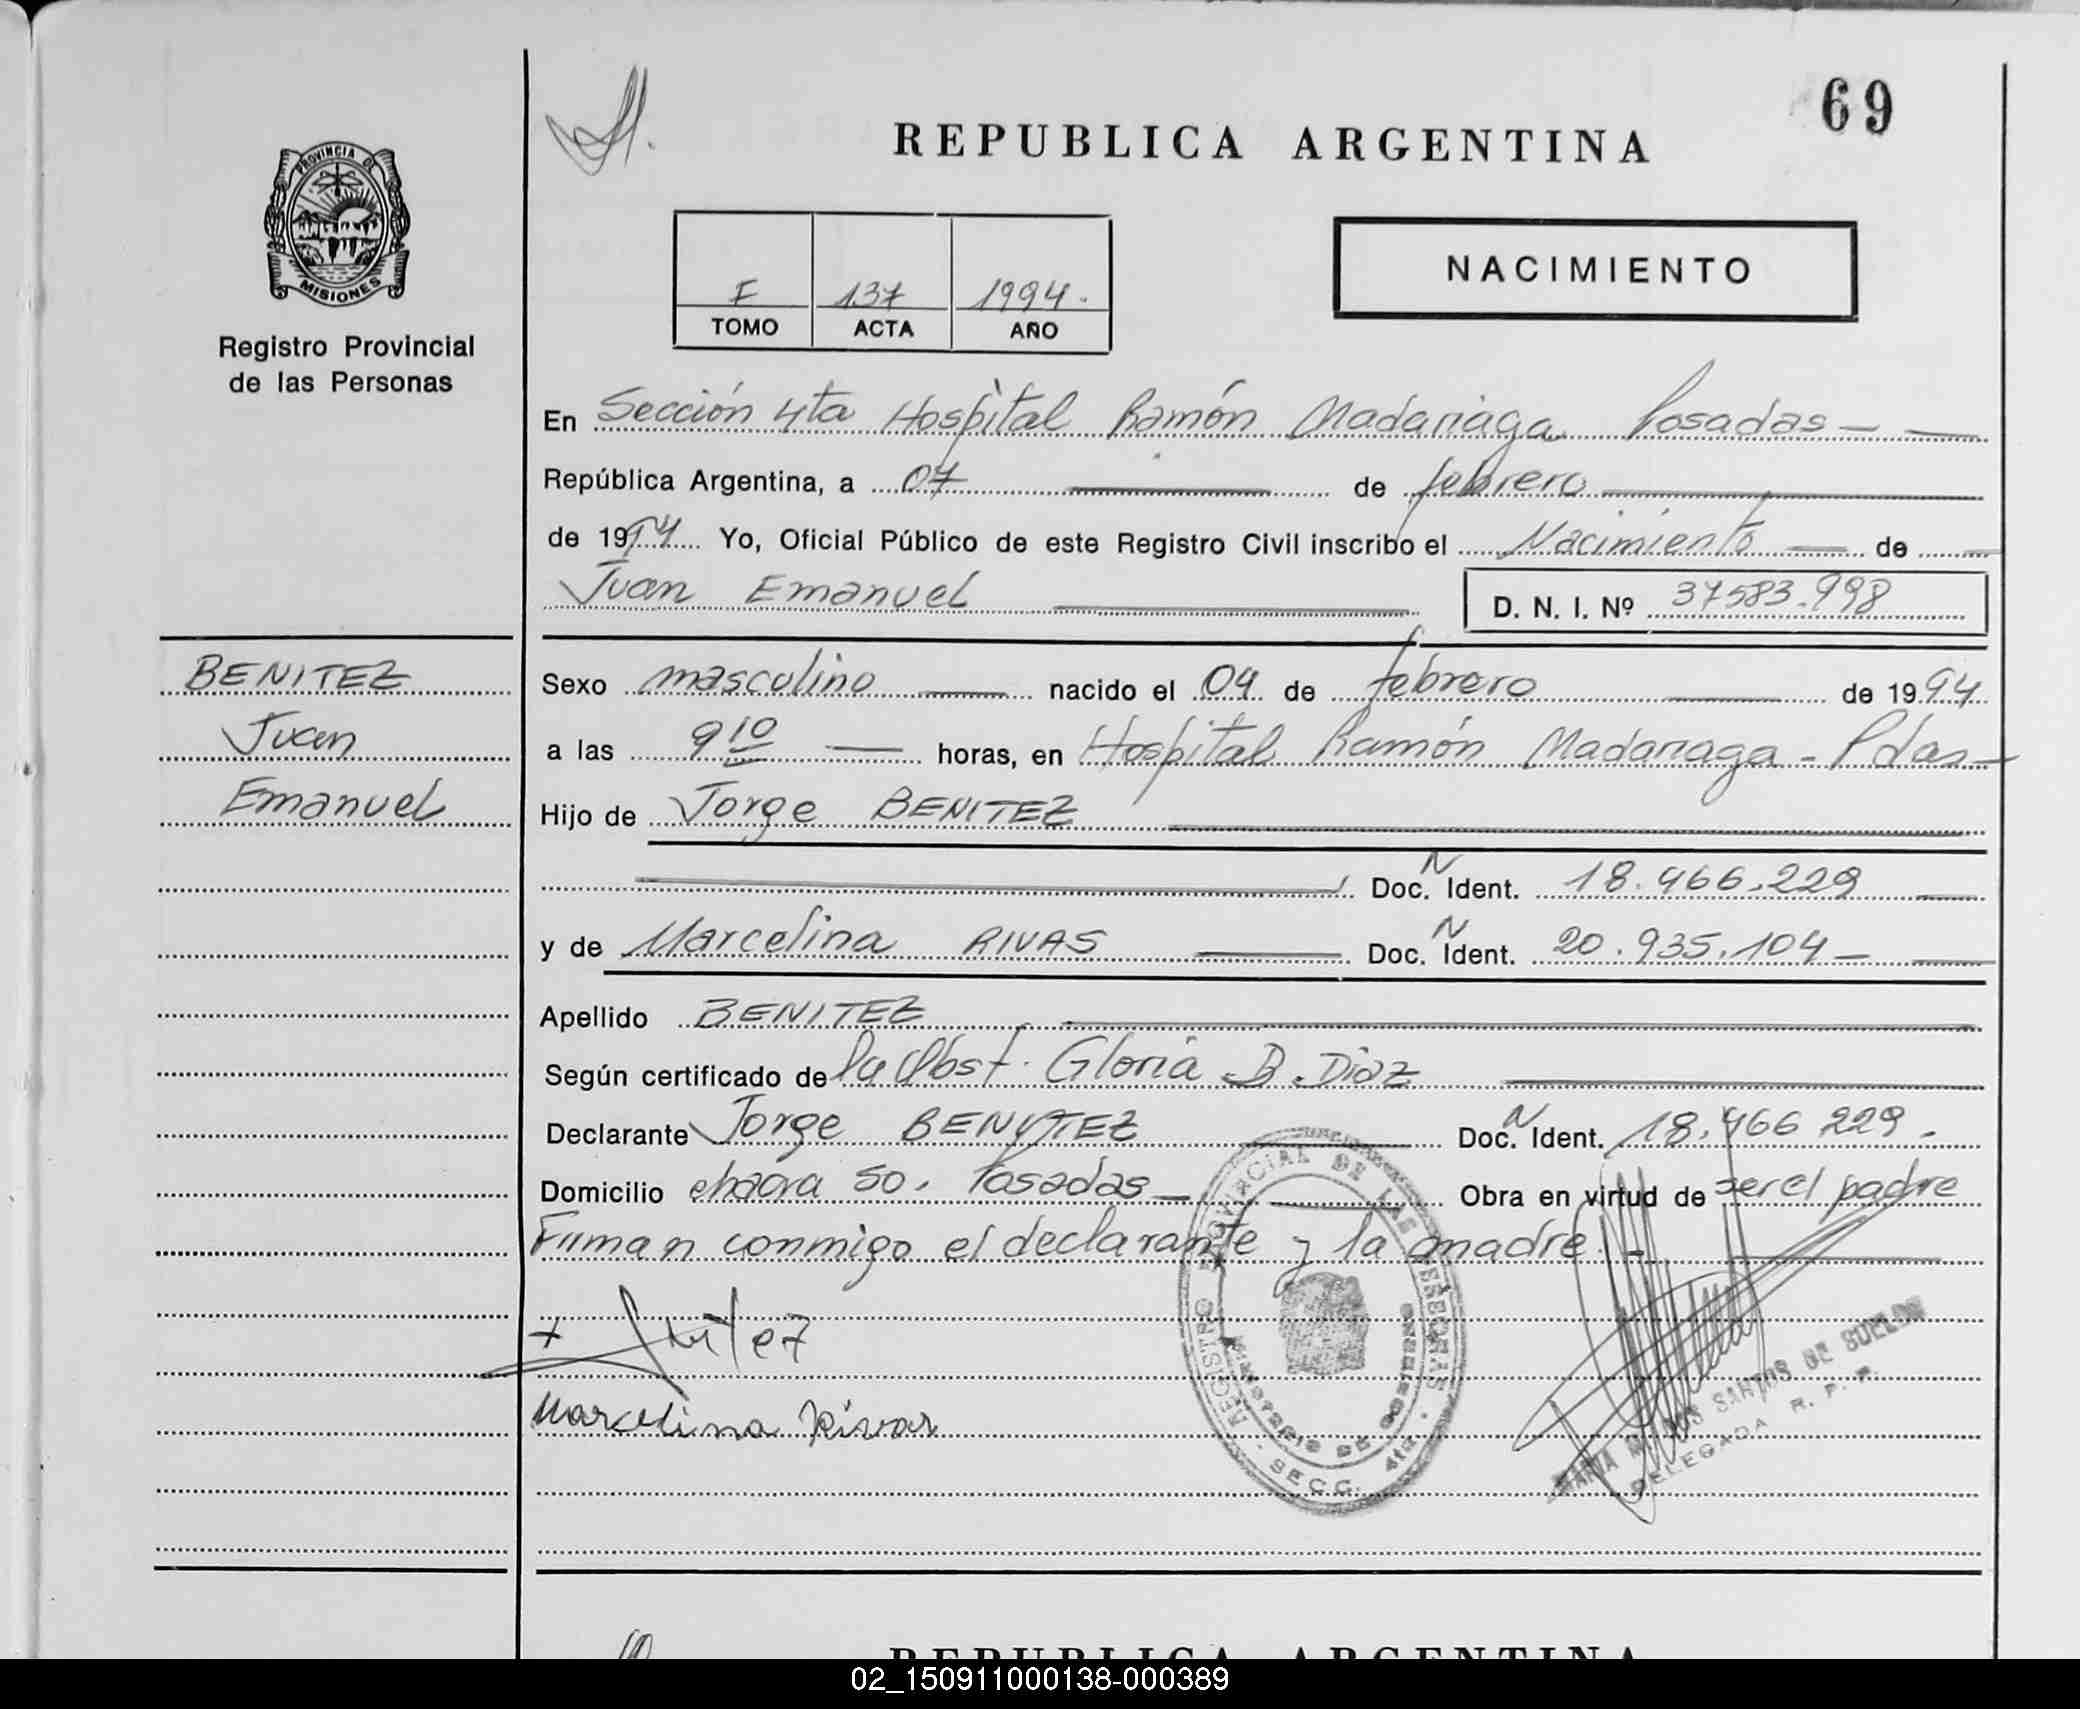 69
REPUBLICA ARGENTINA
PROVINCIA DE
MISIONES
Registro Provincial
de las Personas
I 137 1994.
TOMO ACTA AÑO
NACIMIENTO
En Sección 4ta Hospital Ramón Madariaga Posadas
República Argentina, a 07 de febrero
de 1994 Yo, Oficial Público de este Registro Civil inscribo el Nacimiento de
Juan Emanuel D. N. I. Nº 37583.998
BENITEZ
Juan
Emanuel
Sexo masculino nacido el 04 de febrero de 1994
a las 9 10 horas, en Hospital Ramón Madariaga - Pdas
Hijo de Jorge BENITEZ
Doc. N Ident. 18.466.229
y de Marcelina RIVAS Doc. N Ident. 20.935.104
Apellido BENITEZ
Según certificado de la Obst. Gloria B. Diaz
Declarante Jorge BENITEZ Doc. N Ident. 18.466 229.
Domicilio chacra 50. Posadas Obra en virtud de ser el padre
Firman conmigo el declarante y la madre. -
Marcelina Rivas
REGISTRO PROVINCIAL DE LAS PERSONAS
MINISTERIO DE GOBIERNO
SECC. 4ta
DOS SANTOS DE SUELDO
DELEGADA R. P. P.
REPUBLICA ARGENTINA
02_150911000138-000389